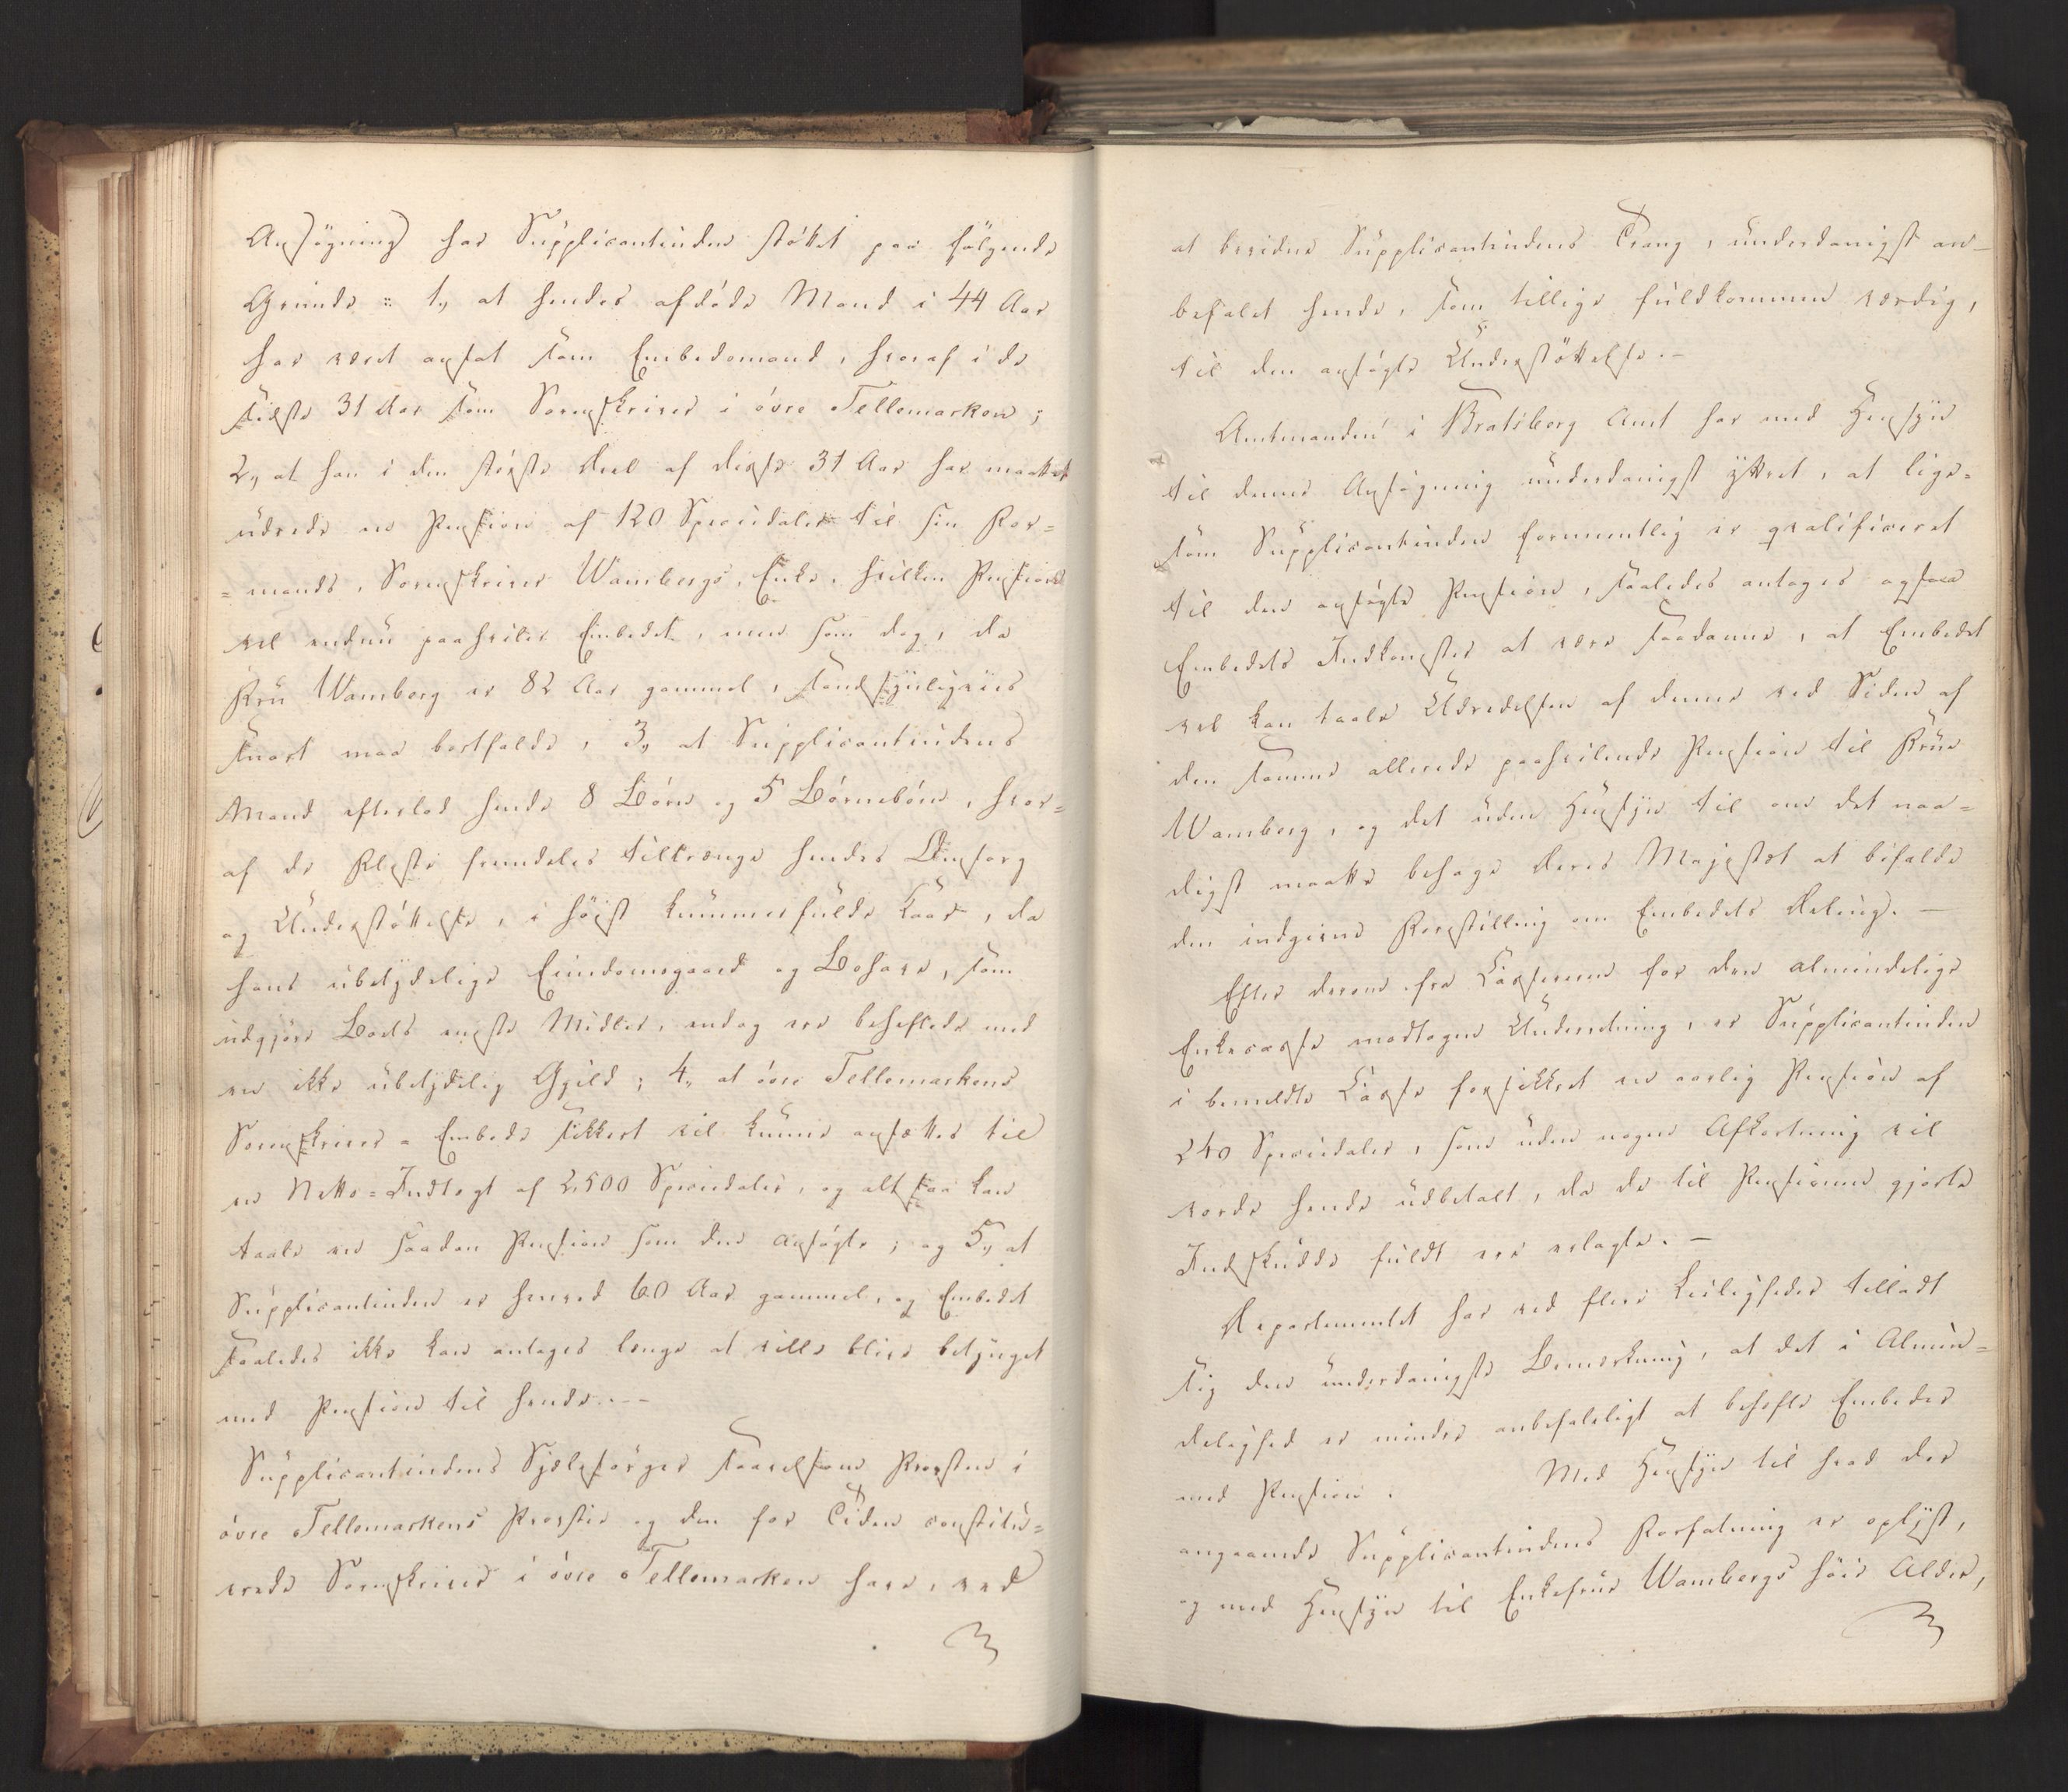 Ansøgning har Supplicantinden støttet paa følgende
Grunde: 1, at hendes afdøde Mand i 44 Aar
har været ansat som Embedsmand, hvoraf i de
sidste 31 Aar som Sorenskriver i øvre Tellemarken;
2, at han i den største Deel af disse 31 Aar har maattet
udrede en Pension af 120 Speciedaler til sin For=
=mands, Sorenskriver Wambergs, Enke, hvilken Pension
vel endnu paahviler Embedet, men som dog, da
Fru Wamberg er 82 Aar gammel, sandsynligviis
snart maa bortfalde; 3, at Supplicantindens
Mand efterlod hende 8 Børn og 5 Børnebørn, hvor=
af de Fleste fremdeles tiltrænge hendes Omsorg
og Understøttelse, i høist kummerfulde Kaar, da
hans ubetydelige Eiendomsgaard og Bohave, som
udgjøre Boets eneste Midler, endog ere beheftede med
en ikke ubetydelig Gjeld; 4, at øvre Tellemarkens
Sorenskriver=Embede sikkert vil kunne ansættes til
en Netto=Indtægt af 2,500 Speciedaler, og altsaa kan
taale en saadan Pension som den ansøgte; og 5, at
Supplicantinden er henved 60 Aar gammel, og Embedet
saaledes ikke kan antages længe at ville blive betynget
med Pension til hende.—
Supplicantindens Sjælesørger saavelsom Provsten i
øvre Tellemarkens Provstie og den for Tiden constitu=
erede Sorenskriver i øvre Tellemarken have, ved
at bevidne Supplicantindens Trang, underdanigst an-
befalet hende, som tillige fuldkommen værdig,
til den ansøgte Understøttelse.—
Amtmanden i Bratsberg Amt har med Hensyn
til denne Ansøgning underdanigst yttret, at lige=
som Supplicantinden formeentlig er qvalificeret
til den ansøgte Pension, saaledes antages ogsaa
Embedets Indkomster at være saadanne, at Embedet
vel kan taale Udredelsen af denne ved Siden af
den samme allerede paahvilende Pension til Frue
Wamberg, og det uden Hensyn til om det naa=
digst maatte behage Deres Majestæt at bifalde
den indgivne Forestilling om Embedets Deling.—
Efter derom fra Casserer for den almindelige
Enkecasse modtagen Underretning, er Supplicantinden
i bemeldte Casse forsikkret en aarlig Pension af
240 Speciedaler, som uden nogen Afkortning vil
vorde hende udbetalt, da de til Pensionen gjorte
Indskudde fuldt ere erlagte.—
Departementet har ved flere Leiligheder tilladt
sig den underdanigste Bemærkning, at det i Almin=
delighed er mindre anbefaleligt at behefte Embeder
med Pension. Med Hensyn til hvad der
angaaende Supplicantindens Forfatning er oplyst,
og med Hensyn til Enkefrue Wambergs høie Alder,